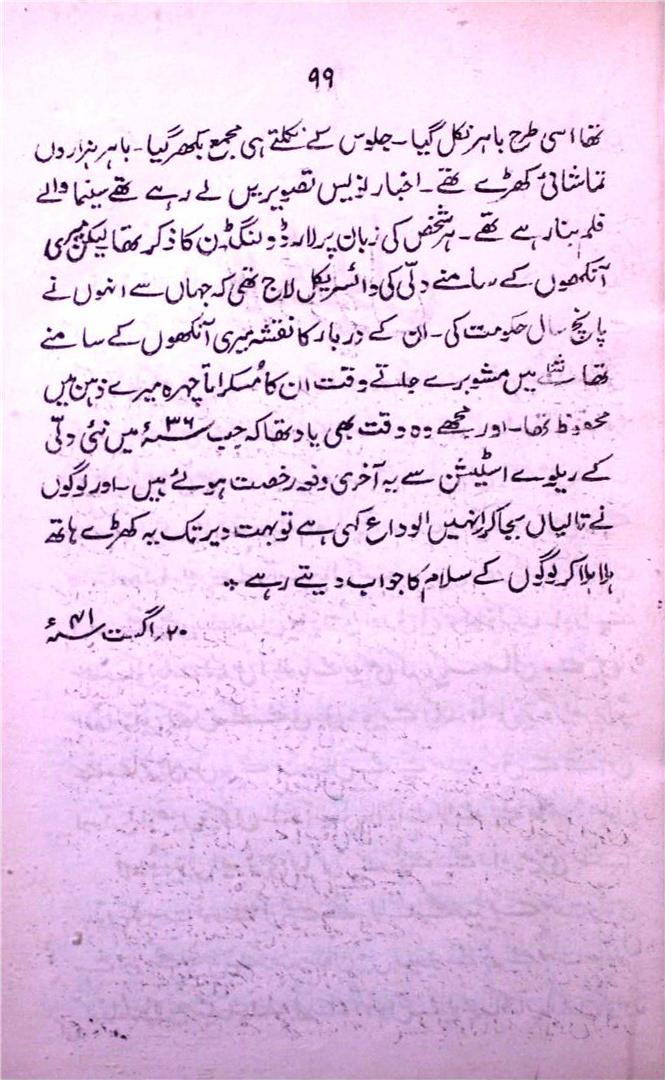 ۹۹
تھا اسی طرح باہر نکل گیا۔ جلوس کے نکلتے ہی مجمع بکھر گیا۔ باہر ہزاروں
تماشائی کھڑے تھے۔ اخبار نویس تصویریں لے رہے تھے سینما والے
فلم بنا رہے تھے۔ ہر شخص کی زبان پر لارڈ ولنگڈن کا ذکر تھا لیکن میری
آنکھوں کے سامنے دلّی کی وائسریگل لاج تھی کہ جہاں سے انہوں نے
پانچ سال حکومت کی۔ ان کے دربار کا نقشہ میری آنکھوں کے سامنے
تھا شملے میں مشوبرے جلتے وقت ان کا مُسکراتا چہرہ میرے ذہن میں
محفوظ تھا۔ اور مجھے وہ وقت بھی یاد تھا کہ جب ۳۶ء میں نئی دلّی
کے ریلوے اسٹیشن سے یہ آخری دفعہ رخصت ہوئے ہیں۔ اور لوگوں
نے تالیاں بجا کر انہیں الوداع کہی ہے تو بہت دیر تک یہ کھڑے ہاتھ
ہلا ہلا کر لوگوں کے سلام کا جواب دیتے رہے *
۲۰؍ اگست ۴۱ء